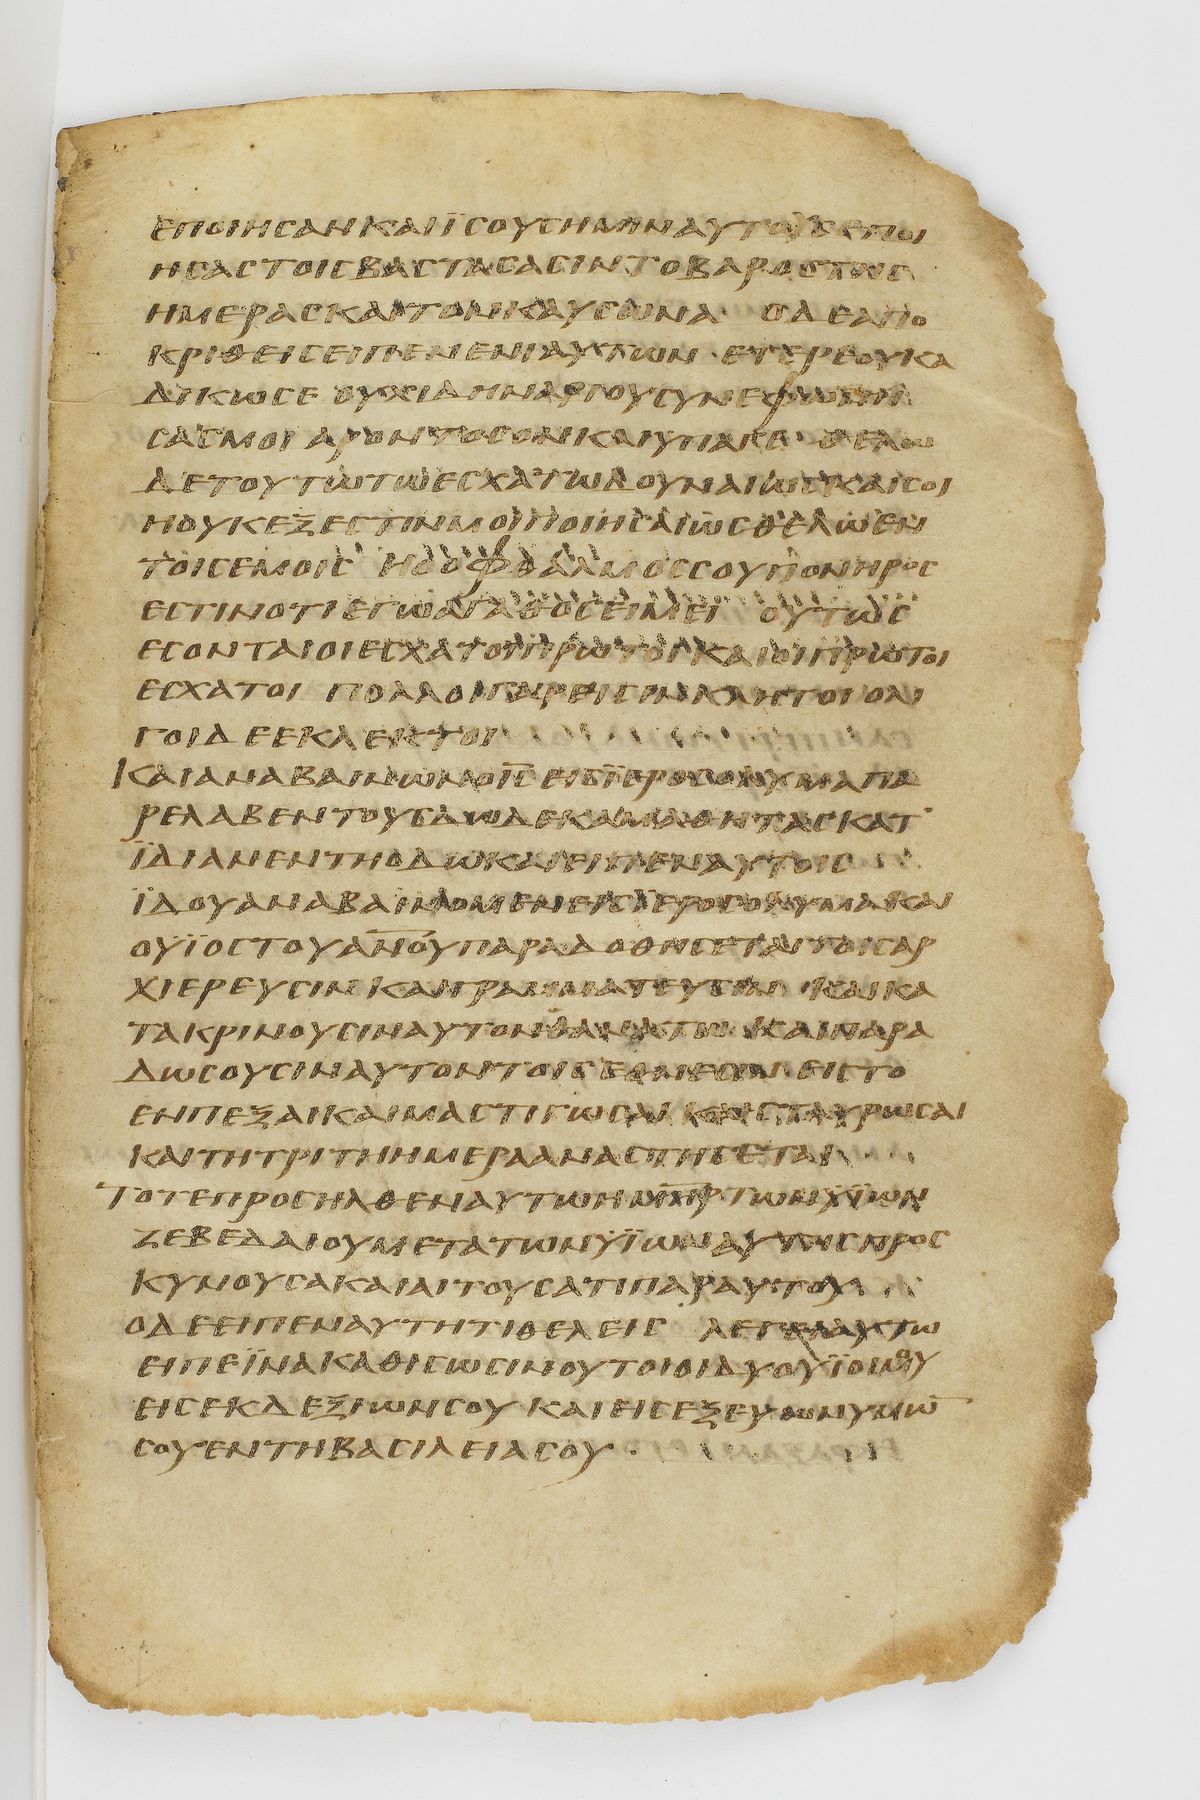 ΕΠΟΙΗϹΑΝΚΑΙΪϹΟΥϹΗΜΙΝΑΥΤΟΥϹΕΠΟΙ
ΗϹΑϹΤΟΙϹΒΑϹΤΑϹΑϹΙΝΤΟΒΑΡΟϹΤΗϹ
ΗΜΕΡΑϹΚΑΙΤΟΝΚΑΥϹΩΝΑ ΟΔΕΑΠΟ
ΚΡΙΘΕΙϹΕΙΠΕΝΕΝΙΑΥΤΩΝ ΕΤΕΡΕΟΥΚΑ
ΔΙΚΩϹΕ ΟΥΧΙΔΗΝΑΡΙΟΥϹΥΝΕΦΩΝΗ
ϹΑϹΜΟΙ ΑΡΟΝΤΟϹΟΝΚΑΙΥΠΑΓΕ ΘΕΛΩ
ΔΕΤΟΥΤΩΤΩΕϹΧΑΤΩΔΟΥΝΑΙΩϹΚΑΙϹΟΙ
ΗΟΥΚΕΞΕϹΤΙΝΜΟΙΠΟΙΗϹΑΙΩϹΘΕΛΩΕΝ
ΤΟΙϹΕΜΟΙϹ ΗΟΟΦΘΑΛΜΟϹϹΟΥΠΟΝΗΡΟϹ
ΕϹΤΙΝΟΤΙΕΓΩΑΓΑΘΟϹΕΙΜΕΙ ΟΥΤΩϹ
ΕϹΟΝΤΑΙΟΙΕϹΧΑΤΟΙΠΡΩΤΟΙΚΑΙΟΙΠΡΩΤΟΙ
ΕϹΧΑΤΟΙ ΠΟΛΛΟΙΓΑΡΕΙϹΙΝΚΛΗΤΟΙΟΛΙ
ΓΟΙΔΕΕΚΛΕΚΤΟΙ
ΚΑΙΑΝΑΒΑΙΝΩΝΟΙϹΕΙϹΪΕΡΟϹΟΛΥΜΑΠΑ
ΡΕΛΑΒΕΝΤΟΥϹΔΩΔΕΚΑΜΑΘΗΤΑϹΚΑΤ
ΪΔΙΑΝΕΝΤΗΟΔΩΚΑΙΕΙΠΕΝΑΥΤΟΙϹ
ΪΔΟΥΑΝΑΒΑΙΝΟΜΕΝΕΙϹΪΕΡΟϹΟΛΥΜΑΚΑΙ
ΟΥΪΟϹΤΟΥΑΝΟΥΠΑΡΑΔΟΘΗϹΕΤΑΙΤΟΙϹΑΡ
ΧΙΕΡΕΥϹΙΝΚΑΙΓΡΑΜΜΑΤΕΥϹΙΝ ΚΑΙΚΑ
ΤΑΚΡΙΝΟΥϹΙΝΑΥΤΟΝΘΑΝΑΤΩ ΚΑΙΠΑΡΑ
ΔΩϹΟΥϹΙΝΑΥΤΟΝΤΟΙϹΕΘΝΕϹΙΝ ΕΙϹΤΟ
ΕΜΠΕΞΑΙΚΑΙΜΑϹΤΙΓΩϹΑΙΚΑΙϹΤΑΥΡΩϹΑΙ
ΚΑΙΤΗΤΡΙΤΗΗΜΕΡΑΑΝΑϹΤΗϹΕΤΑΙ
ΤΟΤΕΠΡΟϹΗΛΘΕΝΑΥΤΩΗΜΗΡΤΩΝΥΪΩΝ
ΖΕΒΕΔΑΙΟΥΜΕΤΑΤΩΝΥΪΩΝΑΥΤΗϹΠΡΟϹ
ΚΥΝΟΥϹΑΚΑΙΑΙΤΟΥϹΑΤΙΠΑΡΑΥΤΟΥ
ΟΔΕΕΙΠΕΝΑΥΤΗΤΙΘΕΛΕΙϹ ΛΕΓΕΙΑΥΤΩ
ΕΙΠΕΪΝΑΚΑΘΙϹΩϹΙΝΟΥΤΟΙΟΙΔΥΟΥΪΟΙΜΟΥ
ΕΙϹΕΚΔΕΞΙΩΝϹΟΥ ΚΑΙΕΙϹΕΞΕΥΩΝΥΜΩ
ϹΟΥΕΝΤΗΒΑϹΙΛΕΙΑϹΟΥ